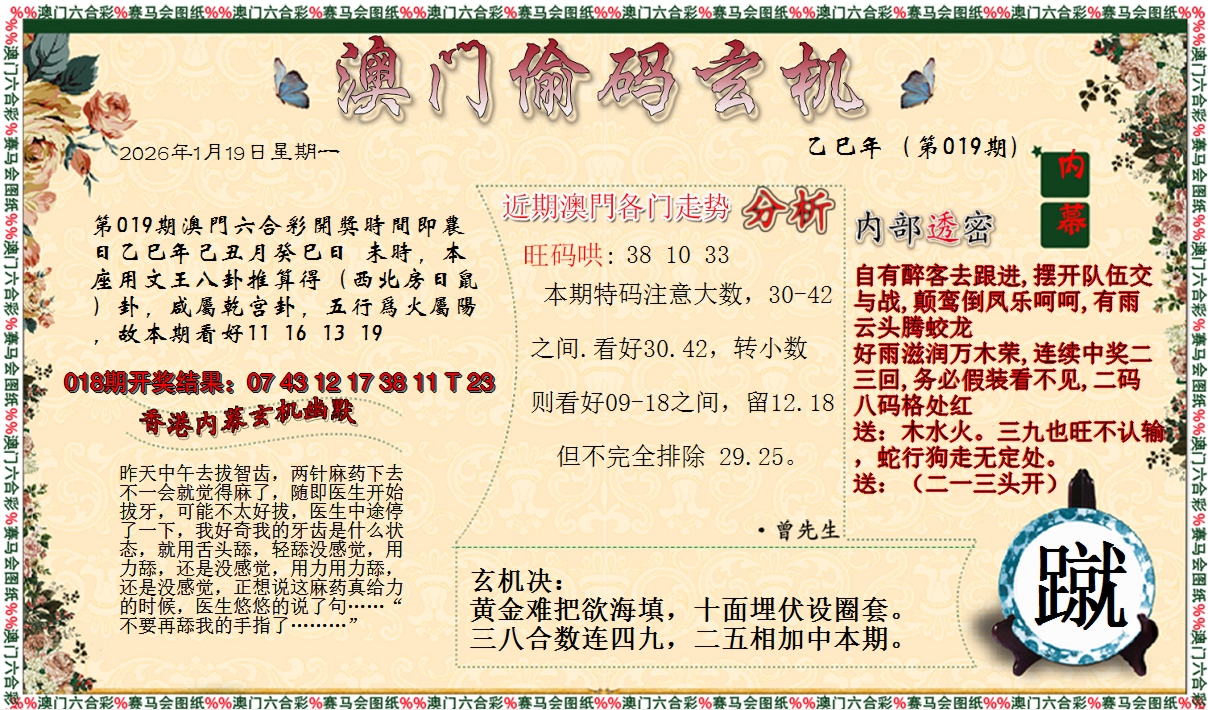 %%澳门六合彩%赛马会图纸%%澳门六合彩%赛马会图纸%%澳门六合彩%赛马会图纸%%澳门六合彩%赛马会图纸%%澳门六合彩%赛马会图纸%%澳门六合彩%赛马会图纸%%
澳门偷码玄机
2026年1月19日星期一
乙巳年（第019期）
内幕
第019期澳門六合彩開獎時間即農
日乙巳年己丑月癸巳日 未時，本
座用文王八卦推算得（西北房日鼠
）卦，咸屬乾宫卦，五行爲火屬陽
，故本期看好11 16 13 19
018期开奖结果：07 43 12 17 38 11 T 23
香港内幕玄机幽默
昨天中午去拔智齿，两针麻药下去
不一会就觉得麻了，随即医生开始
拔牙，可能不太好拔，医生中途停
了一下，我好奇我的牙齿是什么状
态，就用舌头舔，轻舔没感觉，用
力舔，还是没感觉，用力用力舔，
还是没感觉，正想说这麻药真给力
的时候，医生悠悠的说了句……“
不要再舔我的手指了………”
近期澳門各门走势 分析
旺码哄: 38 10 33
本期特码注意大数，30-42
之间.看好30.42，转小数
则看好09-18之间，留12.18
但不完全排除 29.25。
·曾先生
内部透密
自有醉客去跟进,摆开队伍交
与战,颠鸾倒凤乐呵呵,有雨
云头腾蛟龙
好雨滋润万木荣,连续中奖二
三回,务必假装看不见,二码
八码格处红
送：木水火。三九也旺不认输
，蛇行狗走无定处。
送：（二一三头开）
玄机决：
黄金难把欲海填，十面埋伏设圈套。
三八合数连四九，二五相加中本期。
蹴
%%澳门六合彩%赛马会图纸%%澳门六合彩%赛马会图纸%%澳门六合彩%赛马会图纸%%澳门六合彩%赛马会图纸%%澳门六合彩%赛马会图纸%%澳门六合彩%赛马会图纸%%